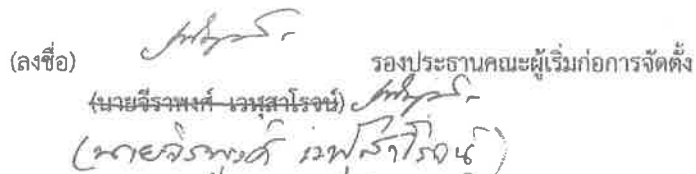 (ลงชื่อ) รองประธานคณะผู้เริ่มก่อการจัดตั้ง
(นายจีราพงศ์ เวฬุสาโรจน์)
(นายจิรพงศ์ เวฬุสาโรจน์)